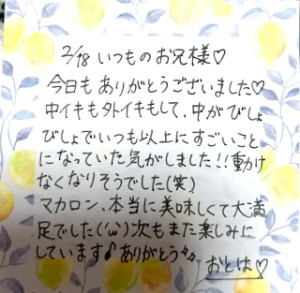 2/18 いつものお兄様♡
今日もありがとうございました♡
中イキも外イキもして、中がびしょ
びしょでいつも以上にすごいこと
になっていた気がしました!!動け
なくなりそうでした(笑)
マカロン、本当に美味しくて大満
足でした('ω')次もまた楽しみに
しています♪ありがとう々々
おとは♡